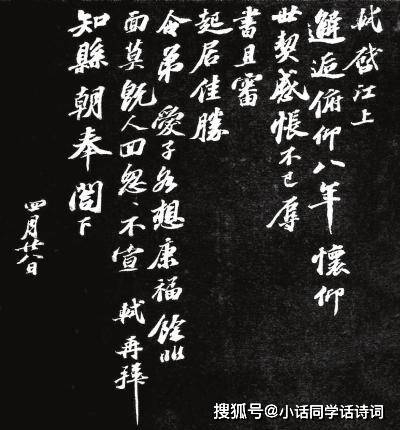 軾啓江上
邂逅俯仰八年懷仰
世契感悵不已辱
書且審
起居佳勝
令弟愛子各想康福餘非
面莫既人回怱〻不宣 軾再拜
知縣朝奉閣下
四月廿八日
搜狐号@小话同学话诗词